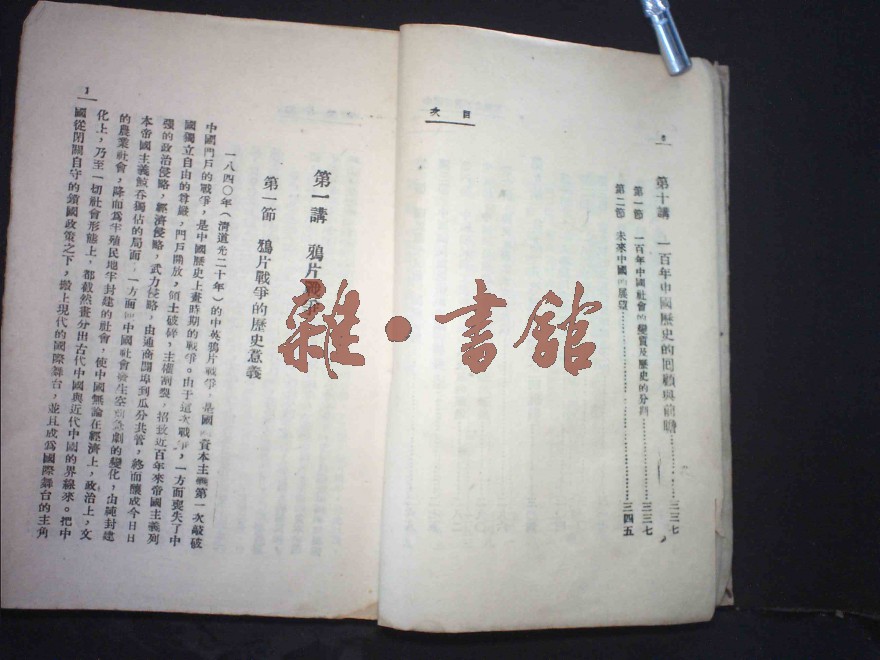 目次
第十講 一百年中國歷史的回顧與前瞻……三三七
第一節 一百年中國社會的變質及歷史的分期……三三七
第二節 未來中國的展望……三四五
第一講 鴉片戰爭
第一節 鴉片戰爭的歷史意義
一八四〇年（清道光二十年）的中英鴉片戰爭，是國 資本主義第一次敲破
中國門戶的戰爭，是中國歷史上畫時期的戰爭。由于這次戰爭，一方面喪失了中
國獨立自由的尊嚴，門戶開放，領土破碎，主權割裂，招致近百年來帝國主義列
强的政治侵略，經濟侵略，武力侵略，由通商開埠到瓜分共管，終而釀成今日日
本帝國主義鯨吞獨佔的局面，一方面 中國社會發生空 急劇的變化，由純封建
的農業社會，降而爲半殖民地半封建的社會，使中國無論在經濟上，政治上，文
化上，乃至一切社會形態上，都截然畫分出古代中國與近代中國的界線來。把中
國從閉關自守的鎖國政策之下，搬上現代的國際舞台，並且成爲國際舞台的主角
1
雜·書館